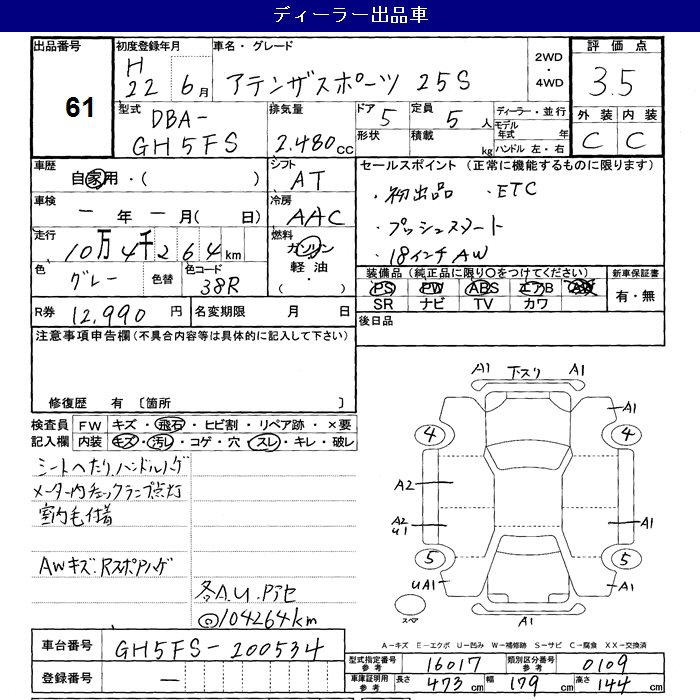 ディーラー出品車
出品番号 61
初度登録年月 H22 6月
車名・グレード アテンザスポーツ 25S
2WD・4WD
評価点 3.5
外装 C 内装 C
型式 DBA-GH5FS
排気量 2.480cc
ドア 5 定員 5人
形状 積載 kg
ディーラー・並行
モデル年式 年
ハンドル 左・右
車歴 自家用・( )
シフト AT
セールスポイント (正常に機能するものに限ります)
・初出品 ・ETC
・プッシュスタート
・18インチAW
車検 ー年ー月( 日)
冷房 AAC
走行 10万4千264km
燃料 ガソリン 軽油・( )
色 グレー 色替 色コード 38R
装備品(純正品に限り○をつけてください) 新車保証書
PS PW ABS エアB AW 有・無
SR ナビ TV カワ
R券 12,990円 名変期限 月 日
後日品
注意事項申告欄(不具合内容等は具体的に記入して下さい)
修復歴 有 〔箇所
検査員記入欄
FW キズ・飛石・ヒビ割・リペア跡・×要
内装 キズ・汚レ・コゲ・穴・スレ・キレ・破レ
シートヘたり.ハンドルハゲ
メーター内チェックランプ点灯
室内毛付着
AWキズ.Rスポアハゲ
◎104264km
A1 下スリ A1
A1
4 4
A2
A2 U1 A1
5 5
UA1 A1
スペア A1
A-キズ E-エクボ U-凹み W-補修跡 S-サビ C-腐食 XX-交換済
車台番号 GH5FS-200534
登録番号 ー
型式指定番号 参考 16017 類別区分番号 参考 0109
車庫証明用 参考 長さ 473cm 幅 179cm 高さ 144cm